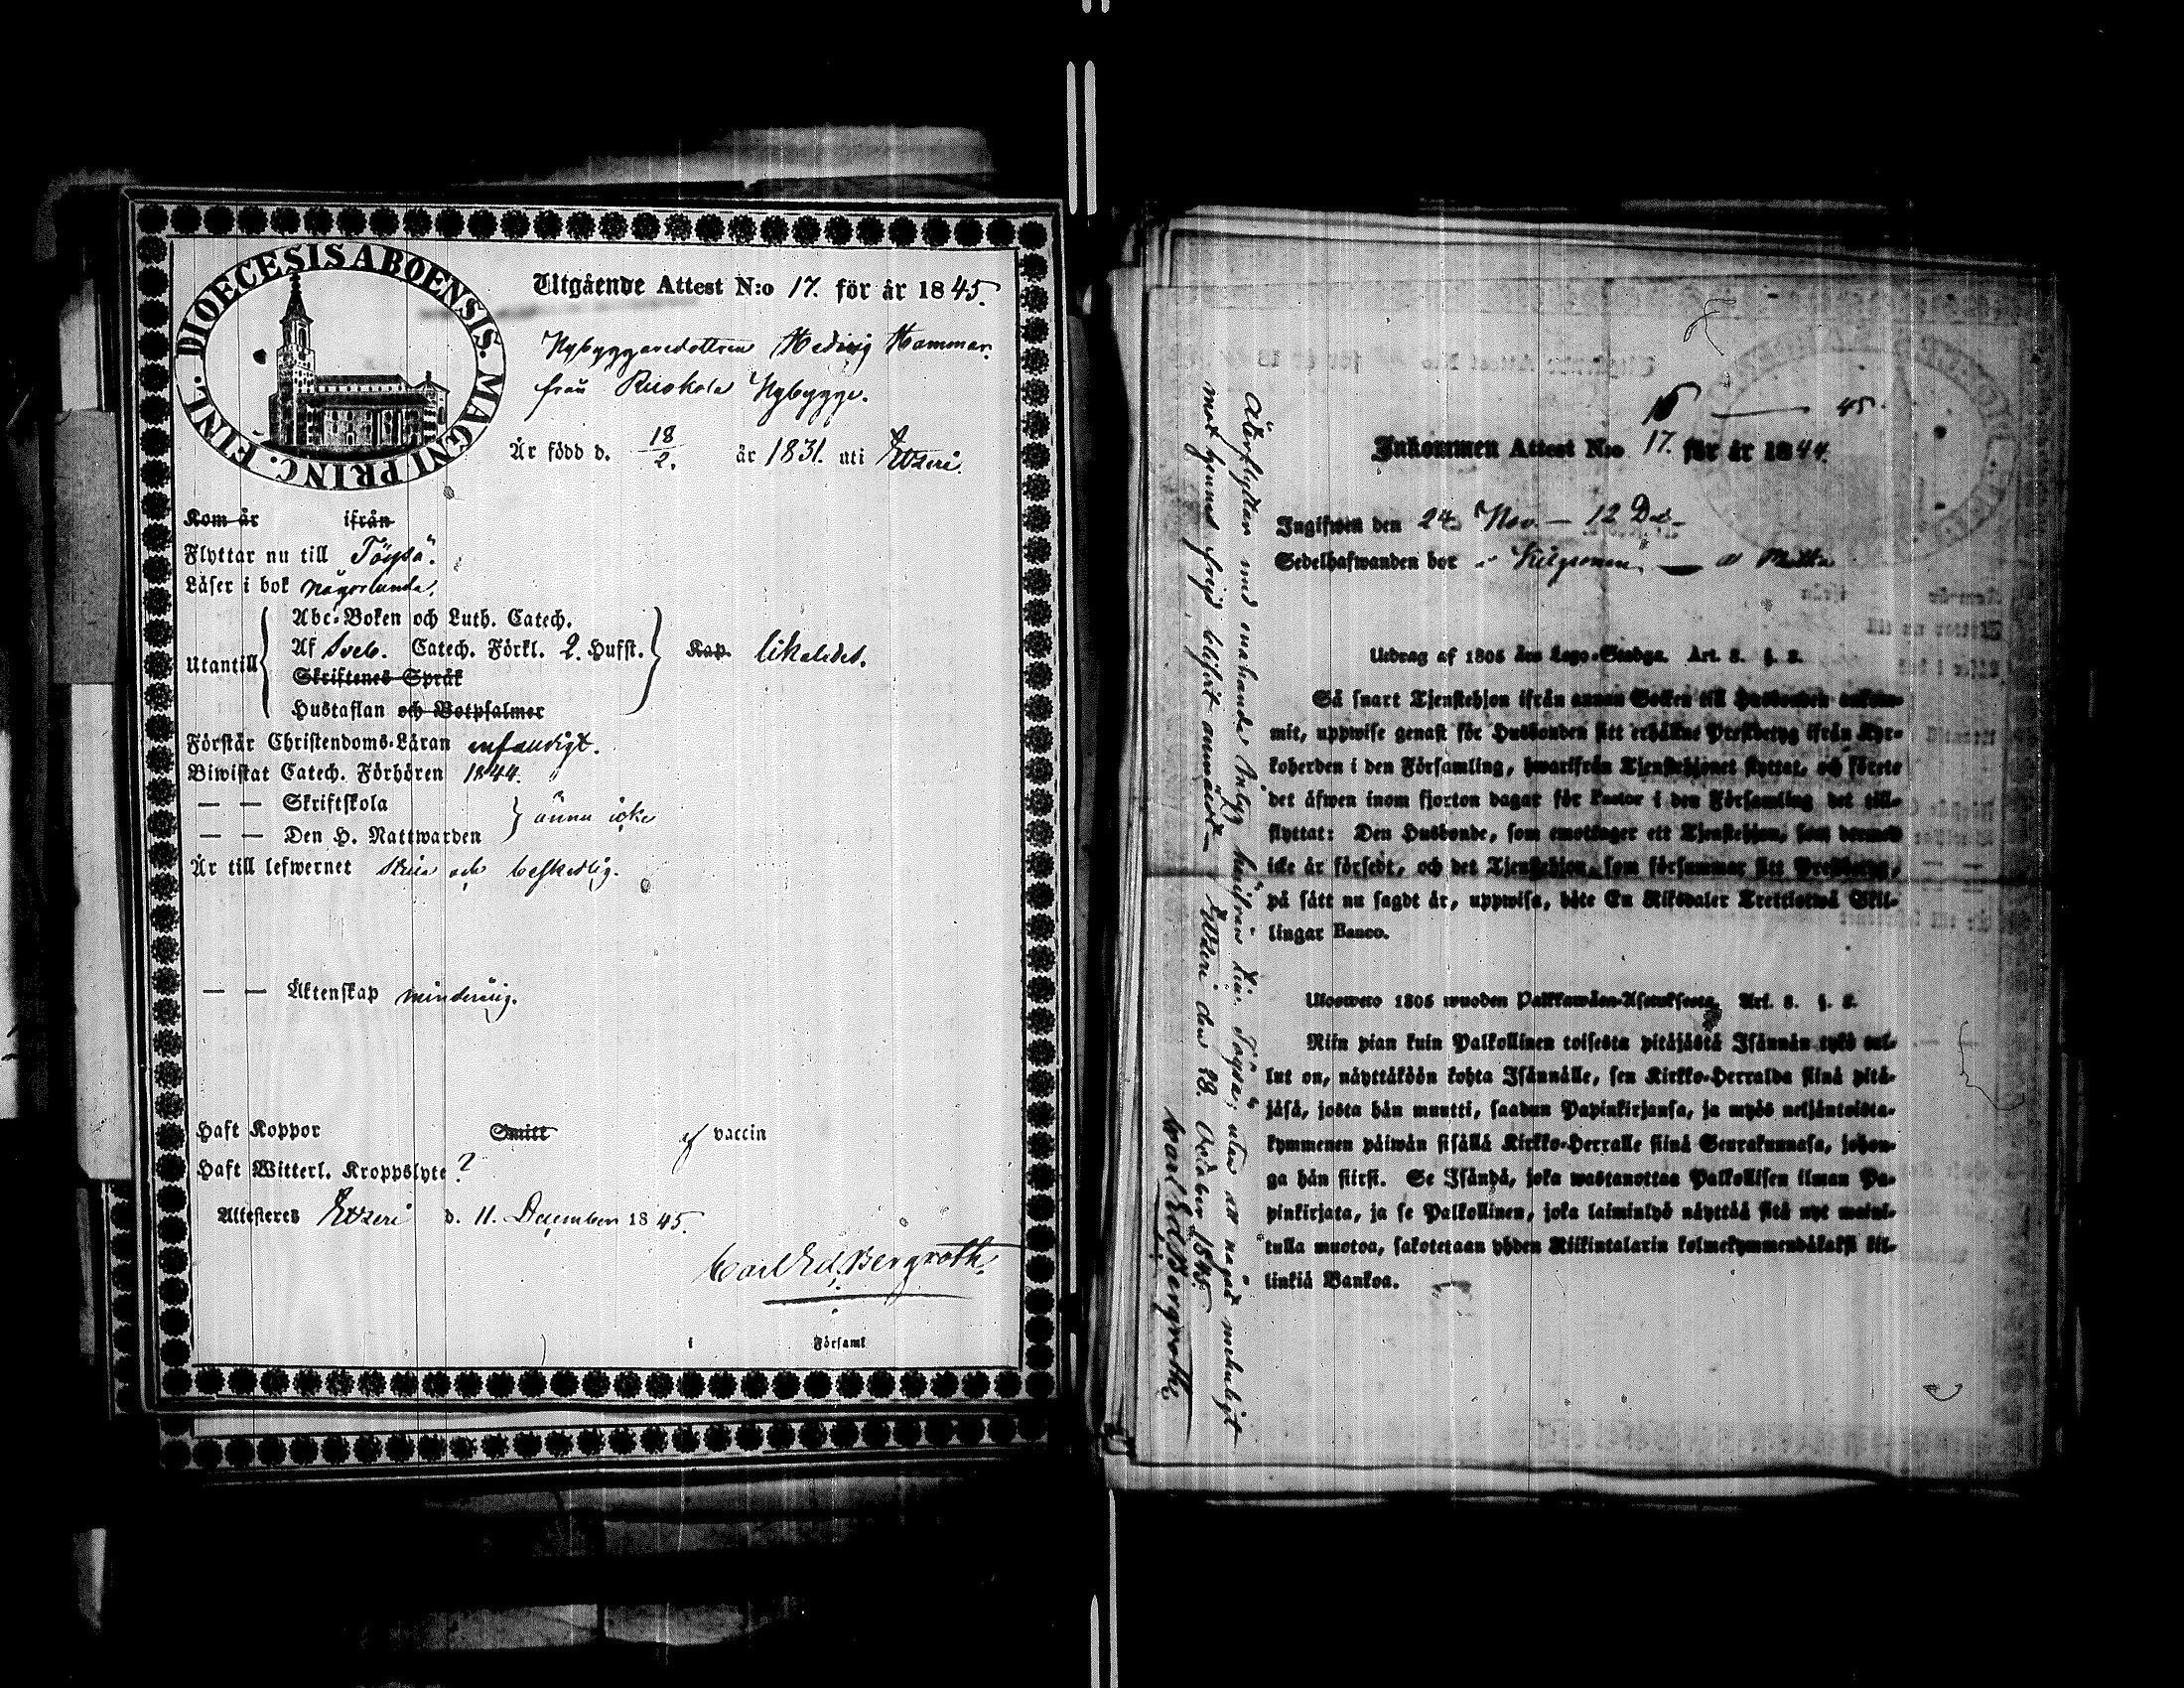 DIOECESIS ABOENSIS. MAGNI PRINC. FINL.
Utgående Attest N:o 17. för år 1845.
Nybyggaredottren Hedvig Hammar.
från Ruokola Nybygge.
Är född d. 18/2. år 1831. uti Etzeri.
Kom år ifrån
Flyttar nu till Töysä.
Läser i bok någorlunda.
Utantill
Abc-Boken och Luth. Catech.
Af Sveb. Catech. Förkl. 2. Hufst.
Skriftenes Språk
Hustaflan och Botpsalmer
Kap. likaledes.
Förstår Christendoms-Läran enfaldigt.
Biwistat Catech. Förhören 1844.
— — Skriftskola
— — Den H. Nattwarden
ännu icke
Är till lefwernet stilla och beskedlig.
— — Äktenskap minderårig.
Haft Koppor Smitt af vaccin
Haft Witterl. Kroppslyte?
Attesteres Etzeri d. 11. December 1845.
Carl Ed. Bergroth.
i Församl
Återflyttar med enahanda betyg härifrån till Töysä; utan att något menligt
mot hennes frejd blifvit anmäldt— Etzeri den 28. October 1845.
Carl Ed. Bergroth.
— 45.
Inkommen Attest N:o 17. för år 1844.
Ingifwen den 24 Nov.— 12 Dec.
Sedelhafwanden bor Matta
Utdrag af 1805 års Lego-Stadga. Art. 8. §. 8.
Så snart Tjenstehjon ifrån annan Socken till Husbonden ankom-
mit, uppwise genast för Husbonden sitt erhållne Prestbetyg ifrån Kyr-
koherden i den Församling, hwarifrån Tjenstehjonet flyttat, och förete
det äfwen inom fjorton dagar för Pastor i den Församling det till-
flyttat: Den Husbonde, som emottager ett Tjenstehjon, som dermed
icke är försedt, och det Tjenstehjon, som försummar sitt Prestbetyg,
på sätt nu sagdt är, uppwisa, böte En Riksdaler Trettiotwå Skil-
lingar Banco.
Uloswero 1805 wuoden Palkkawäen-Asetuksesta. Art. 8. §. 8.
Niin pian kuin Palkollinen toisesta pitäjästä Isännän tykö tul-
lut on, näyttäköön kohta Isännälle, sen Kirkko-Herralda siinä pitä-
jäsä, josta hän muutti, saadun Papinkirjansa, ja myös neljäntoista-
kymmenen päiwän sisällä Kirkko-Herralle siinä Seurakunnasa, johon-
ga hän siirsi. Se Isändä, joka wastanottaa Palkollisen ilman Pa-
pinkirjata, ja se Palkollinen, joka laiminlyö näyttää sitä nyt maini-
tulla muotoa, sakotetaan yhden Riikintalarin kolmekymmendäkaksi kil-
linkiä Bankoa.